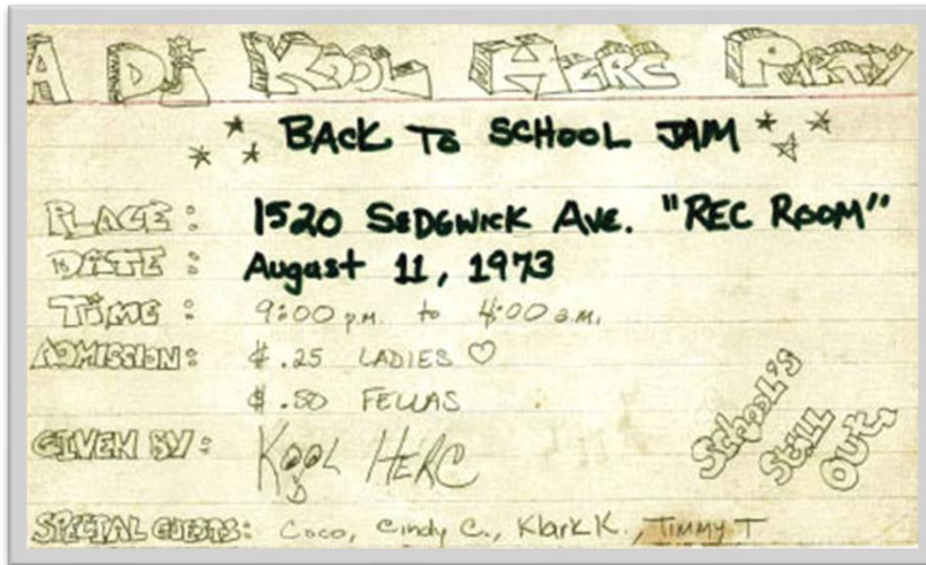 A DJ KOOL HERC PARTY
BACK TO SCHOOL JAM
PLACE: 1520 SEDGWICK AVE. "REC ROOM"
DATE: August 11, 1973
TIME: 9:00 p.m. to 4:00 a.m.
ADMISSION: $.25 LADIES ♡
$.50 FELLAS
GIVEN BY: KOOL HERC
SCHOOL'S
STILL
OUT.
SPECIAL GUESTS: Coco, Cindy C., Klark K., TIMMY T